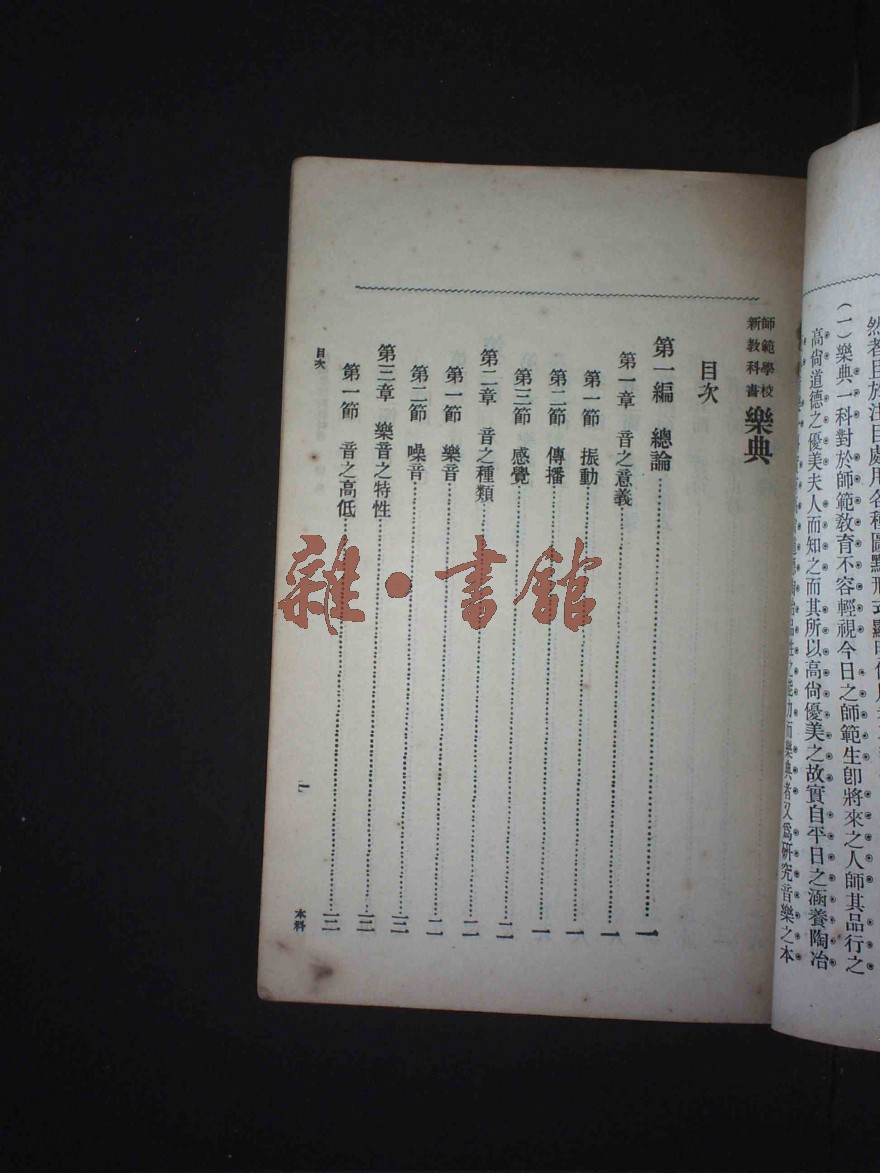 然者且於注目處用各種圖點形式顯明
（一）樂典一科對於師範敎育不容輕視今日之師範生卽將來之人師其品行之
高尙道德之優美夫人而知之而其所以高尙優美之故實自平日之涵養陶冶
之能力而樂典者又爲研究音樂之本
師範學校
新教科書 樂典
目次
第一編 總論……一
第一章 音之意義……一
第一節 振動……一
第二節 傳播……一
第三節 感覺……二
第二章 音之種類……二
第一節 樂音……二
第二節 噪音……三
第三章 樂音之特性……三
第一節 音之高低……三
目次 一 本科
雜·書館